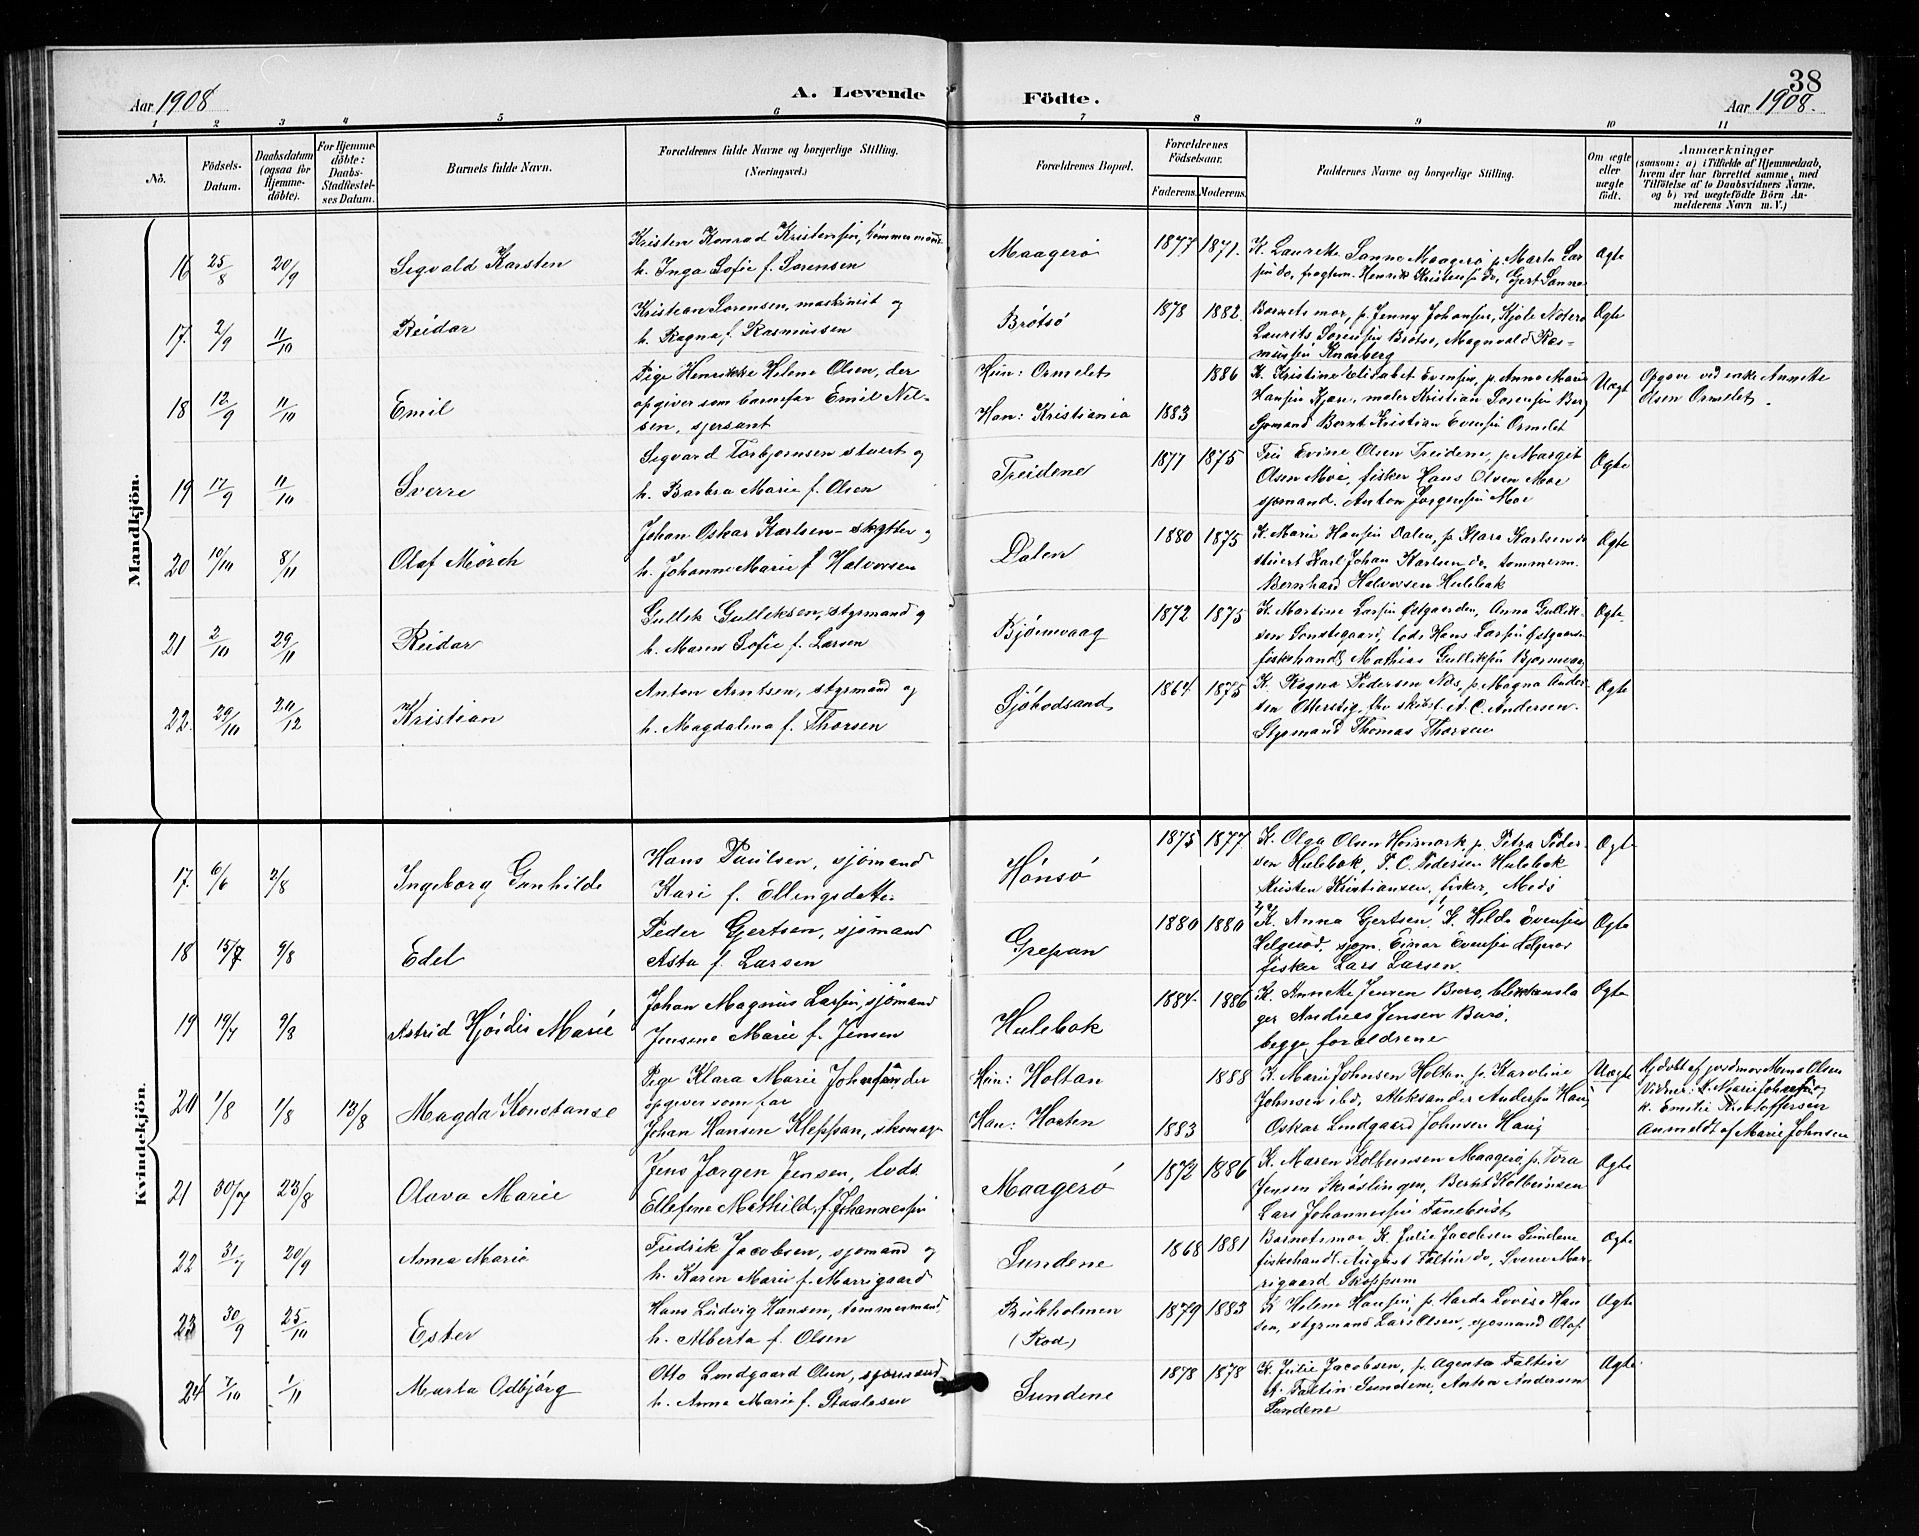 38
Aar 1908
A. Levende Födte.
Aar 1908.
1 2 3 4 5 6 7 8 9 10 11
No.
Födsels-Datum.
Daabsdatum (ogsaa for Hjemme-döbte).
For Hjemme-döbte: Daabs-Stadfæstel-ses Datum.
Barnets fulde Navn.
Forældrenes fulde Navne og borgerlige Stilling. (Næringsvei.)
Forældrenes Bopæl.
Forældrenes Fødselsaar.
Faderens. Moderens.
Faddernes Navne og borgerlige Stilling.
Om ægte eller uægte født.
Anmærkninger
(saasom: a) i Tilfælde af Hjemmedaab, hvem der har forrettet samme, med Tilföielse af to Daabsvidners Navne, og b) ved uægtefødte Börn Anmelderens Navn m. V.)
Mandkjön.
16 25/8 20/9 Sigvald Karsten
Kristen Konrad Kristensen, tömmermand
h. Inga Sofie f. Sørensen
Maagerö 1877 1871.
K. Laurette Sanne Maagerö p. Marta Lar-
sen do, fragtem. Henrik Kristensen do, Gjert Sanne
Ægte
17. 2/9 11/10 Reidar
Kristian Sørensen, maskinist og
h. Ragna f. Rasmussen
Brötsö 1878 1882.
Barnets mor, p. Jenny Johansen, Kjöle Nøterö
Laurits Sørensen Brötsö, Magnvald Ras-
mussen Knarberg
Ægte
18 12/9 11/10 Emil
Pige Henrikke Helene Olsen, der
opgiver som barnefar Emil Nil-
sen, sjersant
Hun: Ormelet 1886
Han: Kristiania 1883
K. Kristine Elisabet Evensen, p. Anna Marie
Hansen Kjære, maler Kristian Sørensen Berg
Sjømand Bernt Kristian Evensen Ormelet
Uægte
Opgave ved enke Annette
Olsen Ormelet.
19 17/9 11/10 Sverre
Sigvard Torbjørnsen stuert og
h. Barbra Marie f. Olsen
Treidene 1877 1875
Fru Evine Olsen Treidene, p. Margit
Olsen Moe, fisker Hans Olsen Moe
sjømand. Anton Jørgensen Moe
Ægte
20 10/10 8/11 Olaf Mörch
Johan Oskar Karlsen skytter og
h. Johanne Marie f. Halvorsen
Dalen 1880 1875
K. Marie Hansen Dalen, p. Klara Karlsen do
stuert Karl Johan Karlsen do, tømmerm.
Bernhard Halvorsen Hulebak
Ægte
21 2/10 29/11 Reidar
Gullik Gulliksen, styrmand og
h. Maren Sofie f. Larsen
Bjönnvaag 1872 1875
K. Martine Larsen Østgaarden, Anna Gullik-
sen Sønstegaard, lods Hans Larsen Østgaarden
fiskehandl. Mathias Gulliksen Bjørnevaag
Ægte
22. 29/10 20/12 Kristian
Anton Arntsen, styrmand og
h. Magdalena f. Thorsen
Sjöbodsand 1864. 1875
K. Ragna Pedersen Næs, p. Magna Ander-
sen Otterstig, A. C. Andersen.
Styrmand Thomas Thorsen
Ægte
Kvindekjön.
17. 6/6 2/8 Ingeborg Gunhilde
Hans Paulsen, sjömand
Kari f. Ellingsdatter
Hönsö 1875 1877
K. Olga Olsen Heimark p. Petra Peder-
sen Hulebak, P. C. Pedersen Hulebak
Kristen Kristiansen, fisker, Medö
Ægte
18 15/7 9/8 Edel
Peder Gertsen, sjömand
Asta f. Larsen
Grepan 1880 1880
K. Anna Gertsen, K. Hilda Evensen
Helgerød, sjøm. Einar Evensen Helgerød
fisker Lars Larsen.
Ægte
19 19/7 9/8 Astrid Hjördis Marie
Johan Magnus Larsen, sjömand
Jensine Marie f. Jensen
Hulebak 1884. 1886
K. Annette Jensen Burö, blikkensla
ger Andreas Jensen Burö,
begge forældrene
Ægte
20 1/8 1/8 13/8 Magda Konstanse
Pige Klara Marie Johnsen der
opgiver som far
Johan Hansen Kleppan, skomager
Hun: Holtan 1888
Han: Horten 1883
K. Marie Johnsen Holtan, p. Karoline
Johnsen ibd, Aleksander Andersen Haug
Oskar Lindgaard Johnsen Haug
Uægte
Hjdöbt af jordmor Mena Olsen
Vidner: K. Marie Johnsen og
k. Emilie Kristoffersen
Anmeldt af Marie Johnsen
21 30/7 23/8 Olava Marie
Jens Jørgen Jensen, lods
Ellefine Mathilde f. Johannesen
Maagerö 1872 1886
K. Maren Kolbeinsen Maagerö, p. Tora
Jensen Skröslingen, Bernt Kolbeinsen
Lars Johannesen Tanekvist
Ægte
22 31/7 20/9 Anna Marie
Fredrik Jacobsen, sjømand og
h. Karen Marie f. Marrigaard
Sundene 1868 1881
Barnets mor, K. Julie Jacobsen Sundene
fiskehandl. August Faltin do, Svene Mar-
rigaard Skoppum
Ægte
23 30/9 25/10 Ester
Hans Ludvig Hansen, tømmermand
h. Alberta f. Olsen
Bukholmen
(Rød) 1879 1883
K. Helene Hansen, p. Harda Lovise Han-
sen, styrmand Lars Olsen, sjømand Olaf
Ægte
24 7/10 1/11 Marta Odbjörg
Otto Lindgaard Olsen, sjømand
h. Anna Marie f. Staalesen
Sundene 1878 1878
K. Julie Jacobsen, p. Agenta Faltin
A. Faltin Sundene, Anton Andersen
Sundene
Ægte